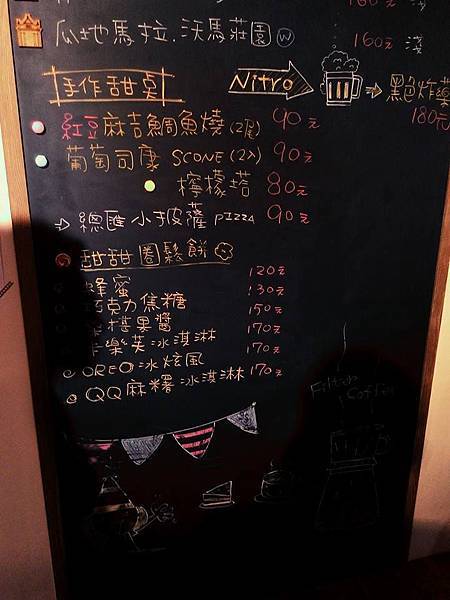 瓜地馬拉.沃馬莊園 W 160元 淺
手作甜点
Nitro
黑色炸藥
180元
紅豆麻吉鯛魚燒(2尾) 90元
葡萄司康 SCONE(2入) 90元
檸檬塔 80元
總匯小披薩 PIZZA 90元
甜甜圈鬆餅
蜂蜜 120元
巧克力焦糖 130元
果醬 150元
樂芙冰淇淋 170元
OREO冰炫風 170元
QQ麻糬冰淇淋 170元
Filter Coffee